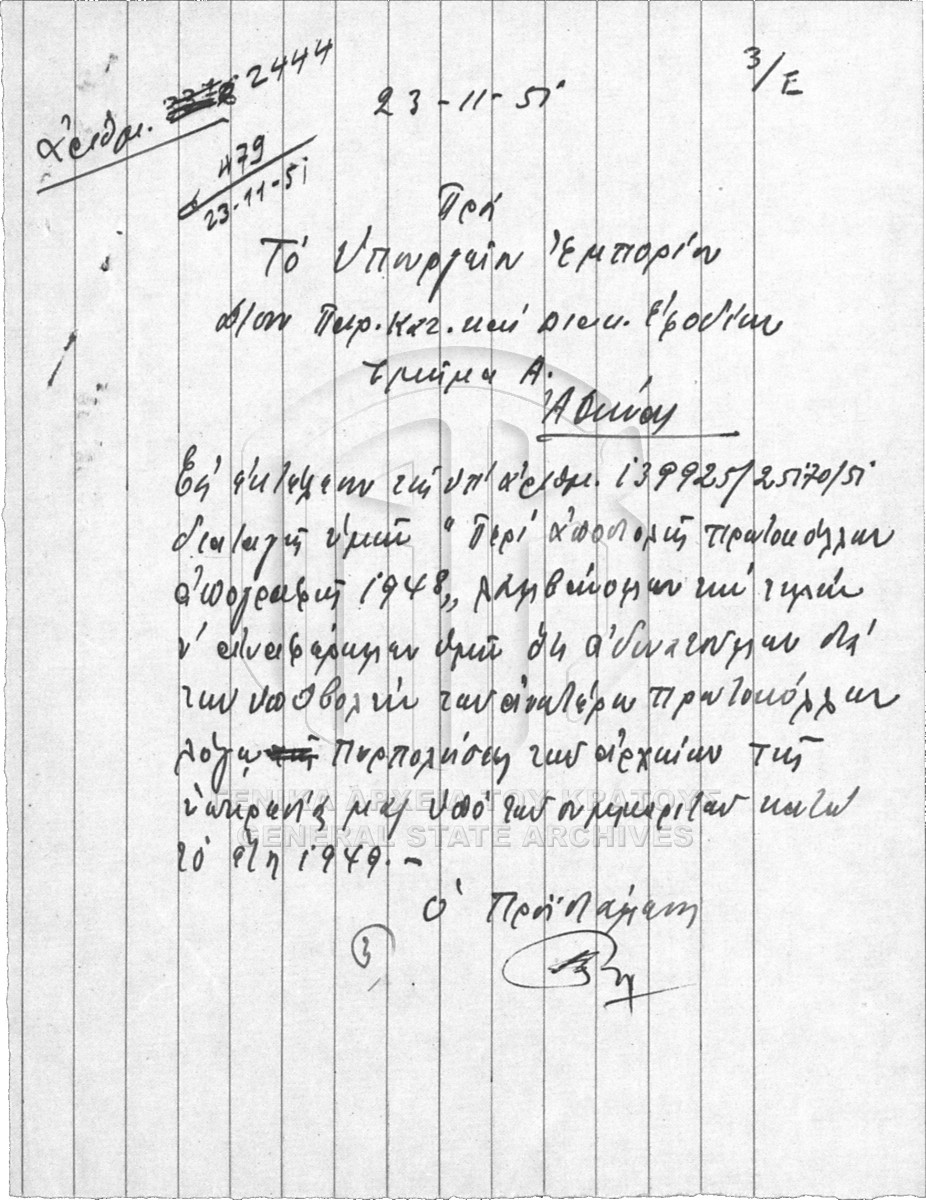 ἀριθμ. 2444
479
23-11-51
23-11-51
3/Ε
Πρός
Τό Ὑπουργεῖον Ἐμπορίου
Δ/σιν Παρ. Κατ. καί Διακ. Ἐφοδίων
Τμῆμα Α.
Ἀθήνας
Εἰς ἐκτέλεσιν τῆς ὑπ' ἀριθμ. 139925/25170/51
διαταγῆς ὑμῶν " Περί ἀποστολῆς πρωτοκόλλων
ἀπογραφῆς 1948 „ λαμβάνομεν τήν τιμήν
ν' ἀναφέρωμεν ὑμῖν ὅτι ἀδυνατοῦμεν διά
τήν ὑποβολήν τῶν ἀνωτέρω πρωτοκόλλων
λόγῳ πυρπολήσεως τῶν ἀρχείων τῆς
ὑπηρεσίας μας ὑπό τῶν συμμοριτῶν κατά
τό ἔτη 1949. -
Ὁ Προϊστάμενος
3
ΓΕΝΙΚΑ ΑΡΧΕΙΑ ΤΟΥ ΚΡΑΤΟΥΣ
GENERAL STATE ARCHIVES